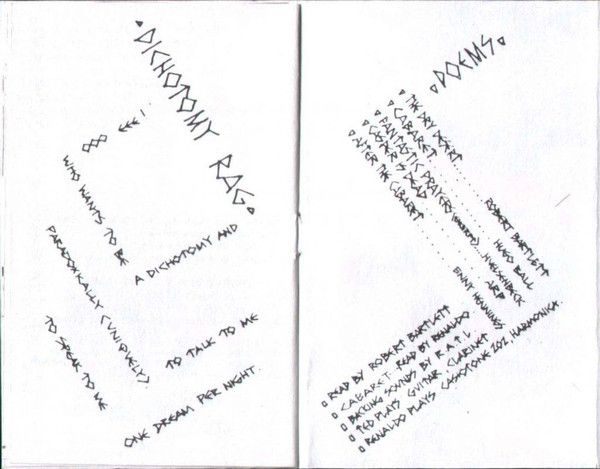 DICHOTOMY RAG
OOO EEE!
WHO WANTS TO BE
A DICHOTOMY AND
PARADOXICALLY (UNIQUELY).
TO TALK TO ME
TO SPEAK TO ME
ONE DREAM PER NIGHT.
POEMS
THE DRY DESERT ROBERT BARTLETT
CABARET HUGO BALL
FANTASTIC PRAYERS HUELSENBECK
CASPER IS DEAD ARP
AFTER THE CABARET EMMY HENNINGS
READ BY ROBERT BARTLETT
CABARET READ BY RENALDO.
BACKING SOUNDS BY R.A.T.L.
TED PLAYS GUITAR, CLARINET
RENALDO PLAYS CASIOTONE 202, HARMONICA.